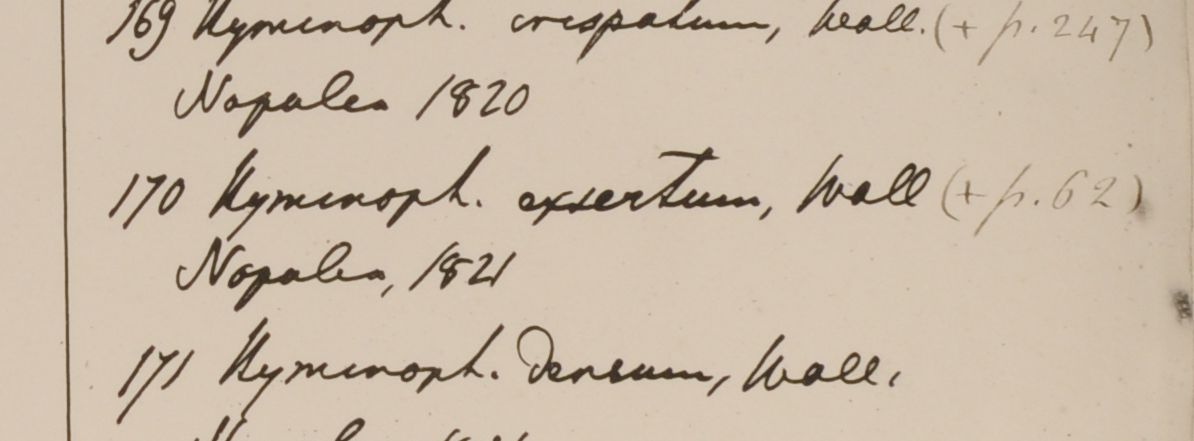 169 Hymenoph. crispatum, Wall. (+ p. 247)
Napalea 1820
170 Hymenoph. exsertum, Wall (+ p. 62)
Napalea, 1821
171 Hymenoph. densum, Wall.